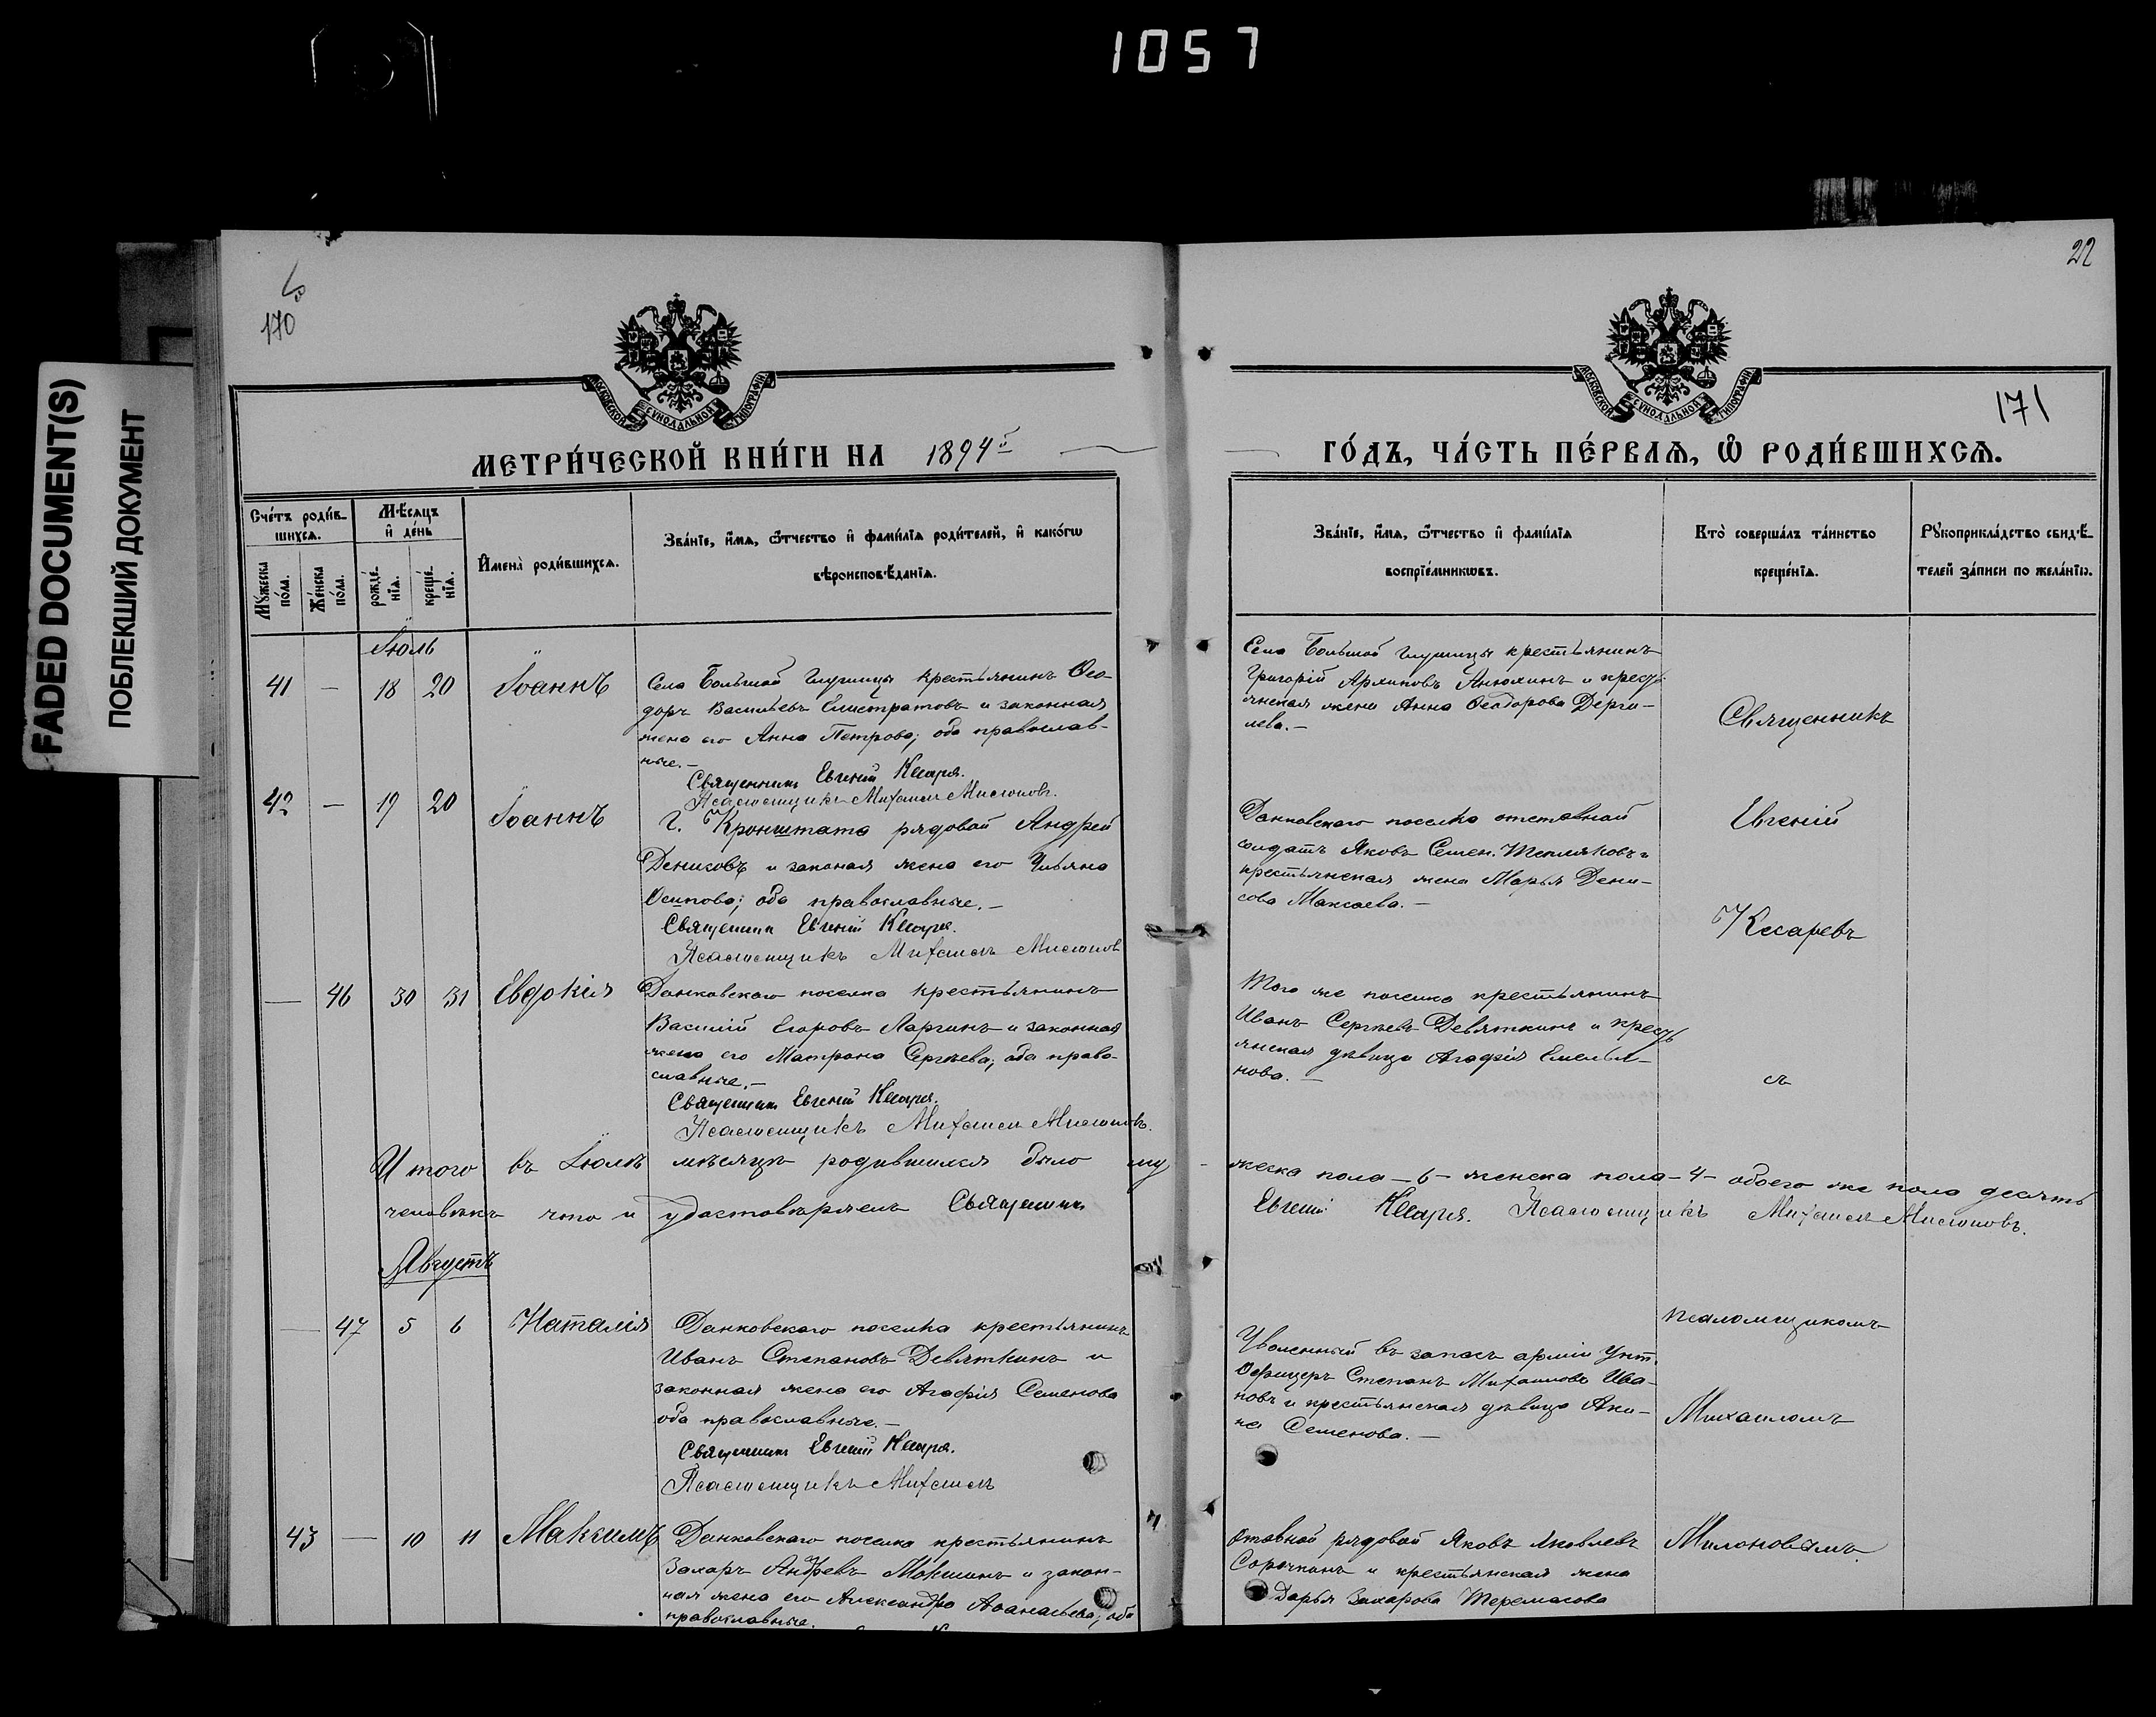 1057
FADED DOCUMENT(S)
ПОБЛЕКШИЙ ДОКУМЕНТ
170
22
171
МОСКОВСКОЙ СѴНОДАЛЬНОЙ ТИПОГРАФІИ
МОСКОВСКОЙ СѴНОДАЛЬНОЙ ТИПОГРАФІИ
МЕТРИ́ЧЕСКОЙ КНИ́ГИ НА 1894й
ГО́ДЪ, ЧА́СТЬ ПЕ́РВАѦ, Ѡ҆ РОДИ́ВШИХСѦ.
Сче́тъ роди́в-
шихсѧ.
Мꙋ́жеска по́ла.
Же́нска по́ла.
Мѣ́сѧцъ
и҆ де́нь
рожде́-нїѧ.
креще́-нїѧ.
И҆мена̀ роди́вшихсѧ.
Зва́нїе, и҆́мѧ, ѻ҆́тчество и҆ фами́лїѧ роди́телей, и҆ како́гѡ
вѣроисповѣ́данїѧ.
Зва́нїе, и҆́мѧ, ѻ҆́тчество и҆ фами́лїѧ
воспрїе́мникѡвъ.
Кто̀ соверша́лъ та́инство
креще́нїѧ.
Рꙋкоприкла́дство свидѣ́-
телей за́писи по жела́нїю.
Іюль
41 — 18 20 Іоаннъ
Села Большой Глушицы крестьянинъ Ѳео-
доръ Васильевъ Елистратовъ и законная
жена его Анна Петрова; оба православ-
ные.—
Священникъ Евгеній Кесаревъ.
Псаломщикъ Михаилъ Милоновъ.
Села Большой Глушицы крестьянинъ
Григорій Архиповъ Анюхинъ и кресть
янская жена Анна Ѳеодорова Дерги-
лева.—
Священникъ
42 — 19 20 Іоаннъ
Г. Кронштата рядовой Андрей
Денисовъ и законая жена его Ульяна
Осипова; оба православные.—
Священникъ Евгеній Кесаревъ.
Псаломщикъ Михаилъ Милоновъ
Данковскаго поселка отставной
солдатъ Яковъ Семен. Шепляковъ и
крестьянская жена Марья Дени-
сова Максаева.—
Евгеній
Кесаревъ
— 46 30 31 Евдокія
Данковскаго поселка крестьянинъ
Василій Егоровъ Ларгинъ и законная
жена его Матрона Сергѣева; оба право-
славные.—
Священникъ Евгеній Кесаревъ.
Псаломщикъ Михаилъ Милоновъ.
Того же поселка крестьянинъ
Иванъ Сергѣевъ Девяткинъ и кресть
янская дѣвица Агафія Емелья-
нова.—
съ
Итого въ Іюлѣ мѣсяцѣ родившихся было му-жеска пола —6— женска пола —4— обоего же пола десять
человѣкъ что и удостовѣряемъ Священникъ Евгеній Кесаревъ. Псаломщикъ Михаилъ Милоновъ.
Августъ
— 47 5 6 Наталія
Данковскаго поселка крестьянинъ
Иванъ Степановъ Девяткинъ и
законная жена его Агафія Семенова
оба православные.—
Священникъ Евгеній Кесаревъ.
Псаломщикъ Михаилъ
Уволенный въ запасъ арміи Унт.
Офицеръ Степанъ Михаиловъ Ива-
новъ и крестьянская дѣвица Аки-
на Семенова.—
псаломщикомъ
Михаиломъ
43 — 10 11 Максимъ
Данковскаго поселка крестьянинъ
Захаръ Андреевъ Мокшинъ и закон-
ная жена его Александра Аѳанасьева; оба
православные.
Отавной рядовой Яковъ Яковлевъ
Сорочкинъ и крестьянская жена
Дарья Захарова Теремасова
Милоновымъ.